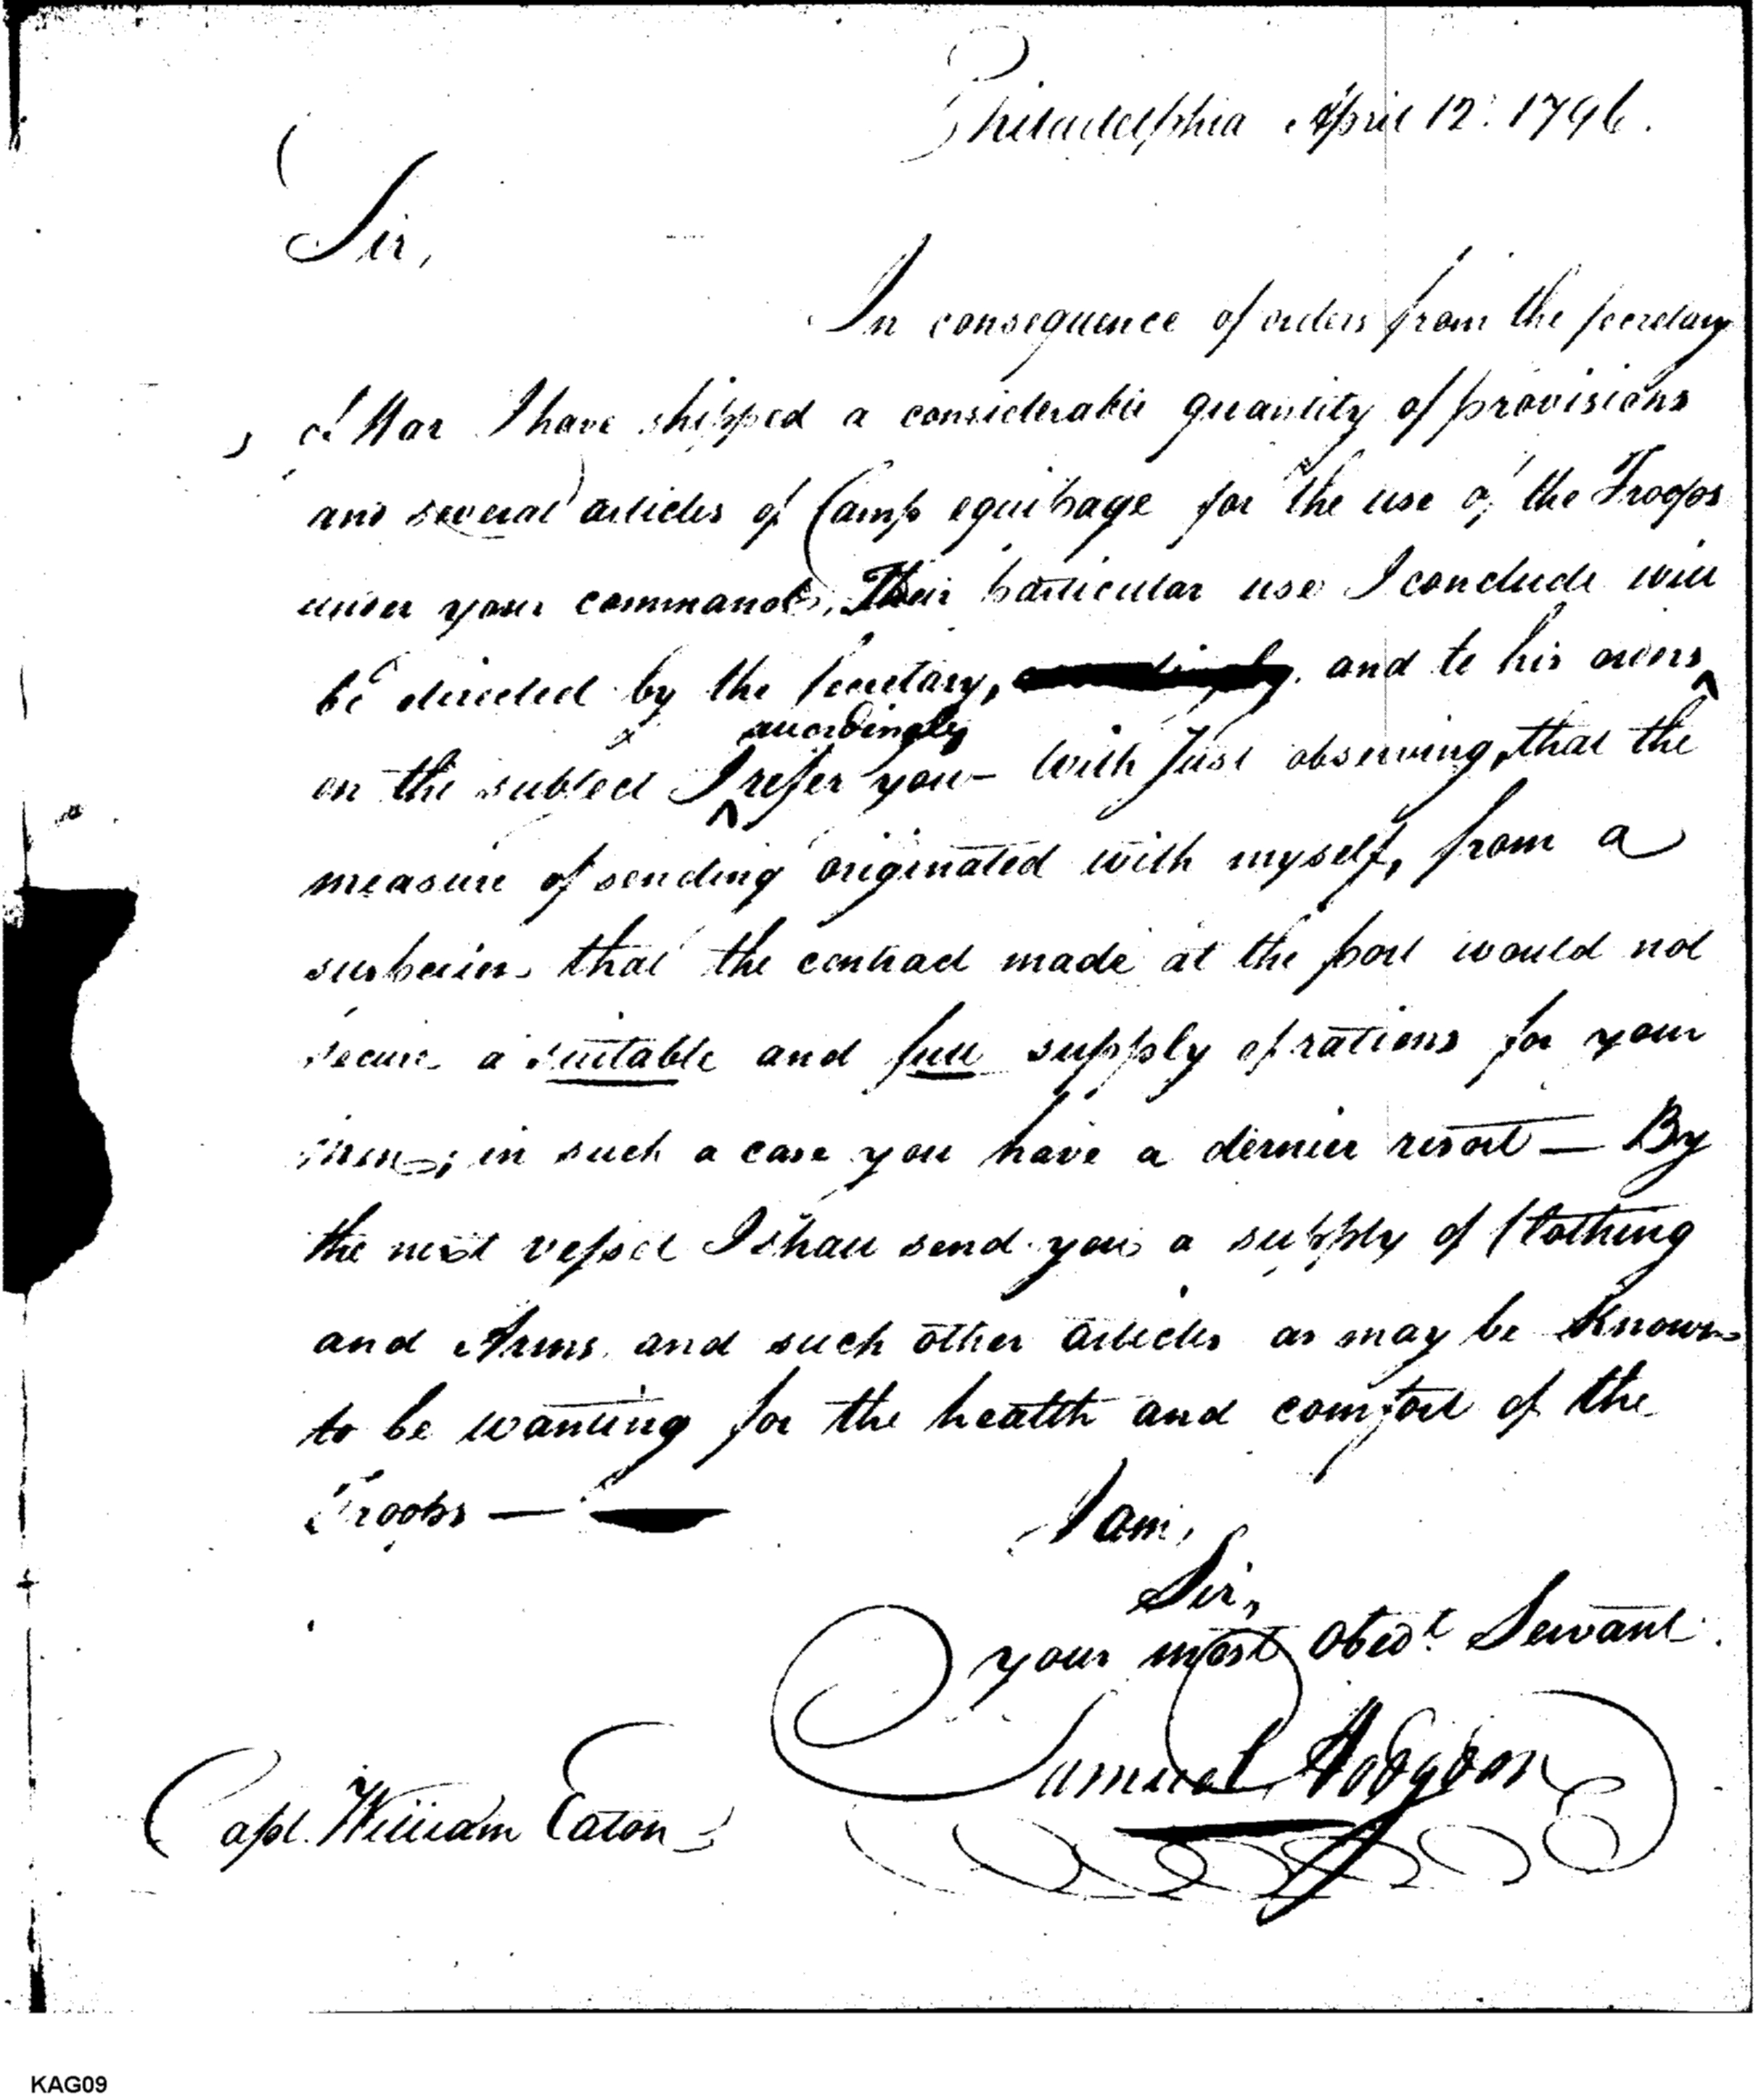 Philadelphia April 12: 1796.
Sir,
In consequence of orders from the Secretary
of War I have shipped a considerable quantity of provisions
and several articles of Camp equipage for the use of the Troops
under your command. Their particular use I conclude will
be directed by the Secretary, and to his orders
accordingly
on the subject I refer you – with Just observing, that the
measure of sending originated with myself, from a
suspicion that the contract made at the post would not
secure a suitable and full supply of rations for your
men; in such a case you have a dernier resort — By
the next vessel I shall send you a supply of Clothing
and Arms and such other articles as may be known
to be wanting for the health and comfort of the
Troops —
I am,
Sir,
your most Obedt Servant.
Samuel Hodgdon
Capt. William Eaton
KAG09